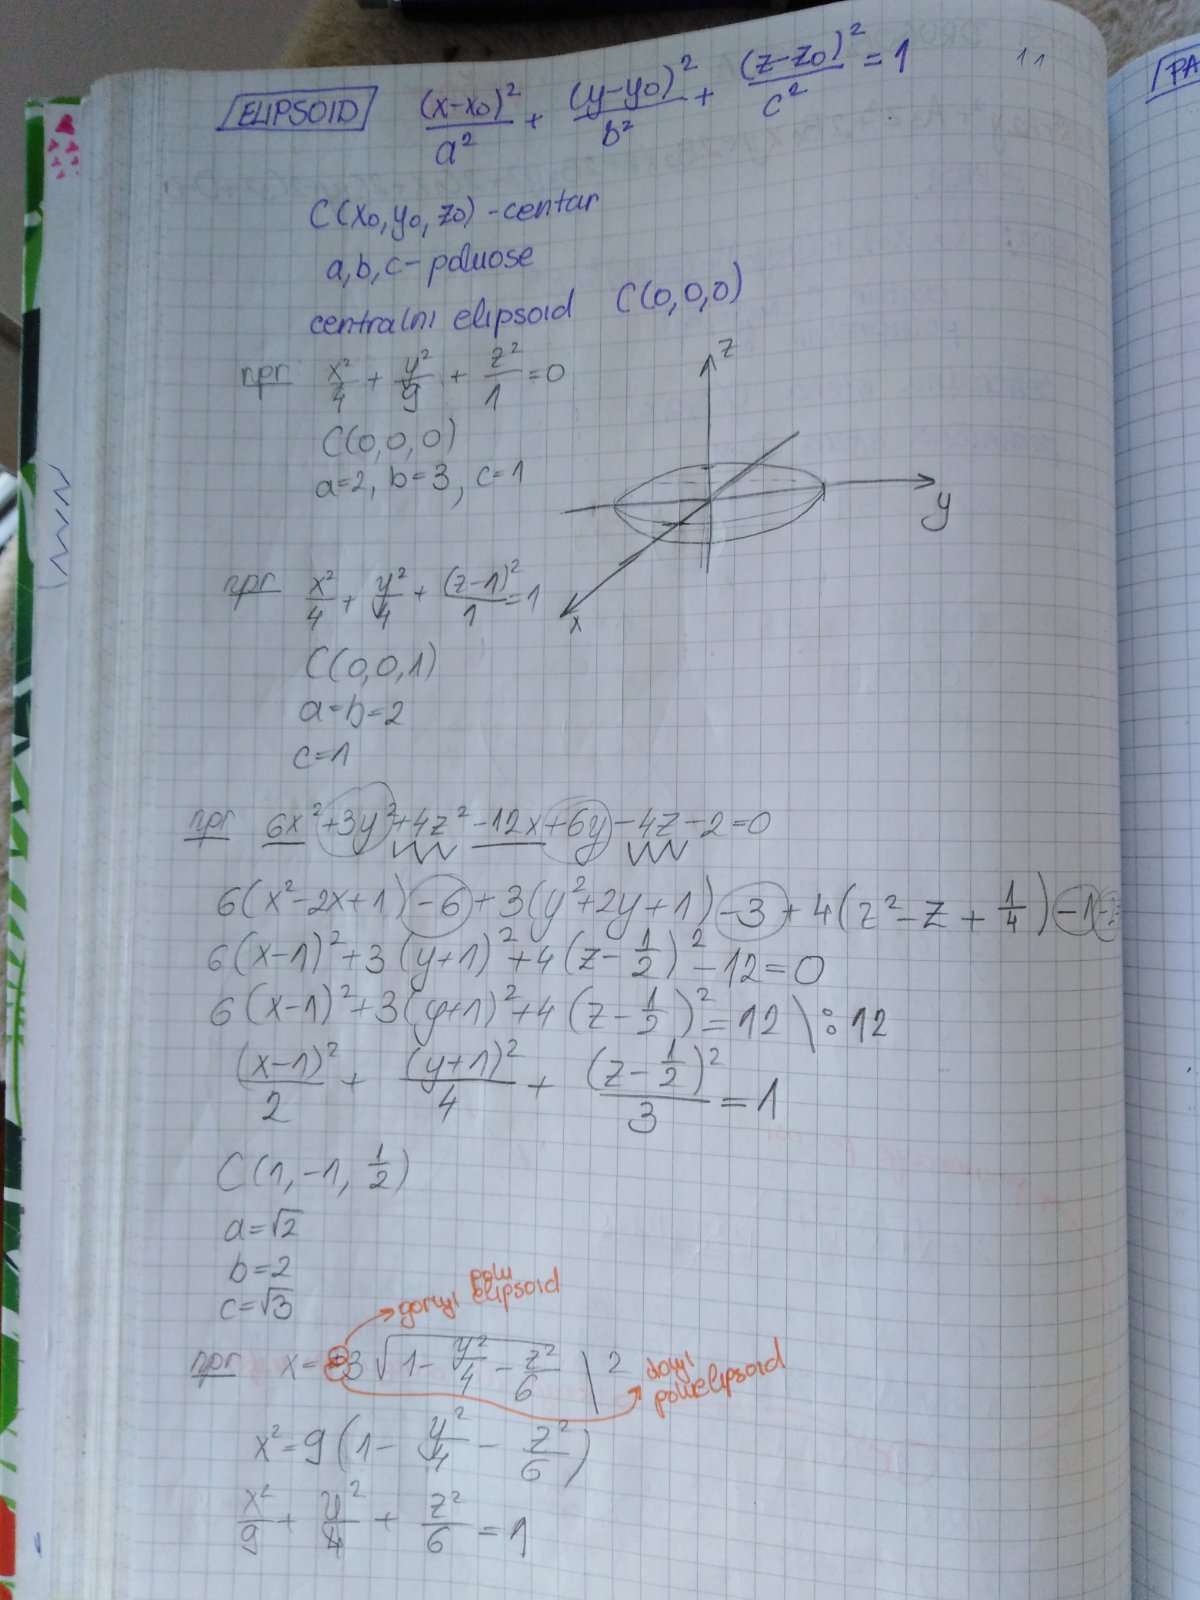 ELIPSOID (x-x0)²/a² + (y-y0)²/b² + (z-z0)²/c² = 1
C(x0, y0, z0) - centar
a, b, c - poluose
centralni elipsoid C(0,0,0)
npr x²/4 + y²/9 + z²/1 = 0
C(0,0,0)
a=2, b=3, c=1
z
y
x
npr x²/4 + y²/4 + (z-1)²/1 = 1
C(0,0,1)
a=b=2
c=1
npr 6x²+3y²+4z²-12x+6y-4z-2=0
6(x²-2x+1)-6+3(y²+2y+1)-3+4(z²-z+1/4)-1-2
6(x-1)²+3(y+1)²+4(z-1/2)²-12=0
6(x-1)²+3(y+1)²+4(z-1/2)²=12 \ :12
(x-1)²/2 + (y+1)²/4 + (z-1/2)²/3 = 1
C(1,-1,1/2)
a=√2
b=2
c=√3
gornji polu elipsoid
npr x=±3√(1-y²/4-z²/6) \ ²
donji poluelipsoid
x²=9(1-y²/4-z²/6)
x²/9 + y²/4 + z²/6 = 1
PA